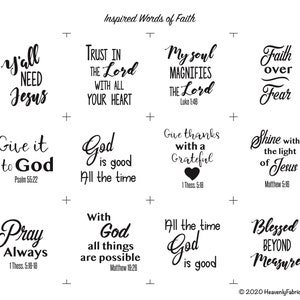 Inspired Words of Faith
y'all
NEED
Jesus
TRUST IN
THE Lord
WITH ALL
YOUR HEART
My soul
MAGNIFIES
THE Lord
Luke 1:46
Faith
over
Fear
Give it
to God
Psalm 55:22
God
is good
All the time
Give thanks
with a
Grateful
1 Thess. 5:18
Shine with
the light
of Jesus
Matthew 5:16
Pray
Always
1 Thess. 5:16-18
With
God
all things
are possible
Matthew 19:26
All the time
God
is good
Blessed
BEYOND
Measure
© 2020 HeavenlyFabric